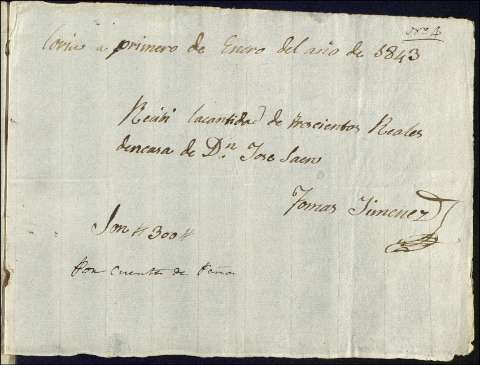 Nº 4
Coria a primero de Enero del año de 1843
Recibi lacantidad de trescientos Reales
dencasa de Dn Jose Saen
Tomas Jimenez
Son # 300 #
Por cuenta de